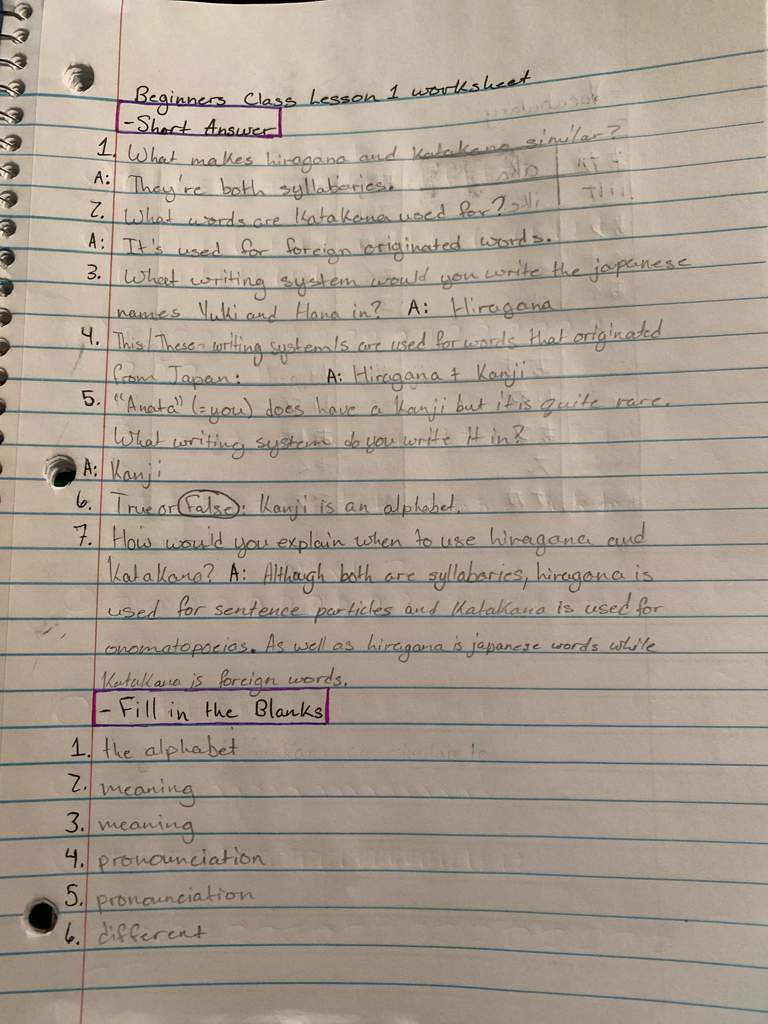 Beginners Class Lesson 1 worksheet
- Short Answer
1. What makes hiragana and Katakana similar?
A: They're both syllabaries.
2. What words are Katakana used for?
A: It's used for foreign originated words.
3. What writing system would you write the japanese
names Yuki and Hana in? A: Hiragana
4. This/These writing system/s are used for words that originated
from Japan: A: Hiragana + Kanji
5. "Anata" (=you) does have a Kanji but it is quite rare.
What writing system do you write it in?
A: Kanji
6. True or False: Kanji is an alphabet.
7. How would you explain when to use hiragana and
Katakana? A: Although both are syllabaries, hiragana is
used for sentence particles and Katakana is used for
onomatopoeias. As well as hiragana is japanese words while
Katakana is foreign words.
- Fill in the Blanks
1. the alphabet
2. meaning
3. meaning
4. pronounciation
5. pronounciation
6. different